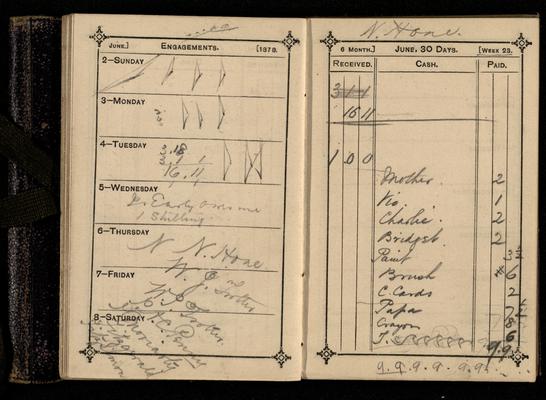 JUNE.] ENGAGEMENTS. [1878.
2–SUNDAY
3–MONDAY
4–TUESDAY
3.18
3. 1 1
16.11
5–WEDNESDAY
Early owes me
1 Shilling
6–THURSDAY
N N. Hone
7–FRIDAY
W. J.
W. J.
8–SATURDAY
Fitzgerald
N. Hone.
6 MONTH.] JUNE, 30 DAYS. [WEEK 23.
RECEIVED. CASH. PAID.
3 1 1
16 11
1 0 0
Mother. 2
Vio. 1
Charlie. 2
Bridget. 2
Paint 3
Brush 6
C. Cards 2
Papa 7
Crayon 8
J. 6
9.9
9. 9. 9. 9. 9. 9.